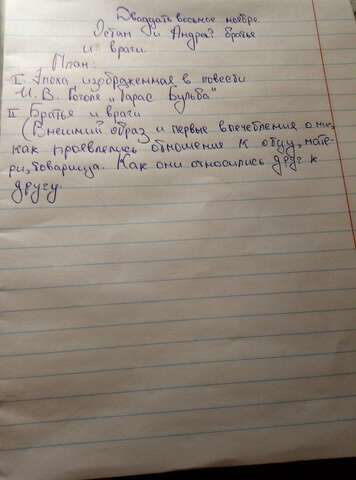 Двадцать восьмое ноября.
Остап и Андрей братья
и враги.
План:
I Эпоха изображенная в повести
Н. В. Гоголя "Тарас Бульба"
II Братья и враги
(Внешний образ и первые впечебления о них,
как проявлялись отношения к отцу, мате-
ри, товарища. Как они относились друг к
другу.